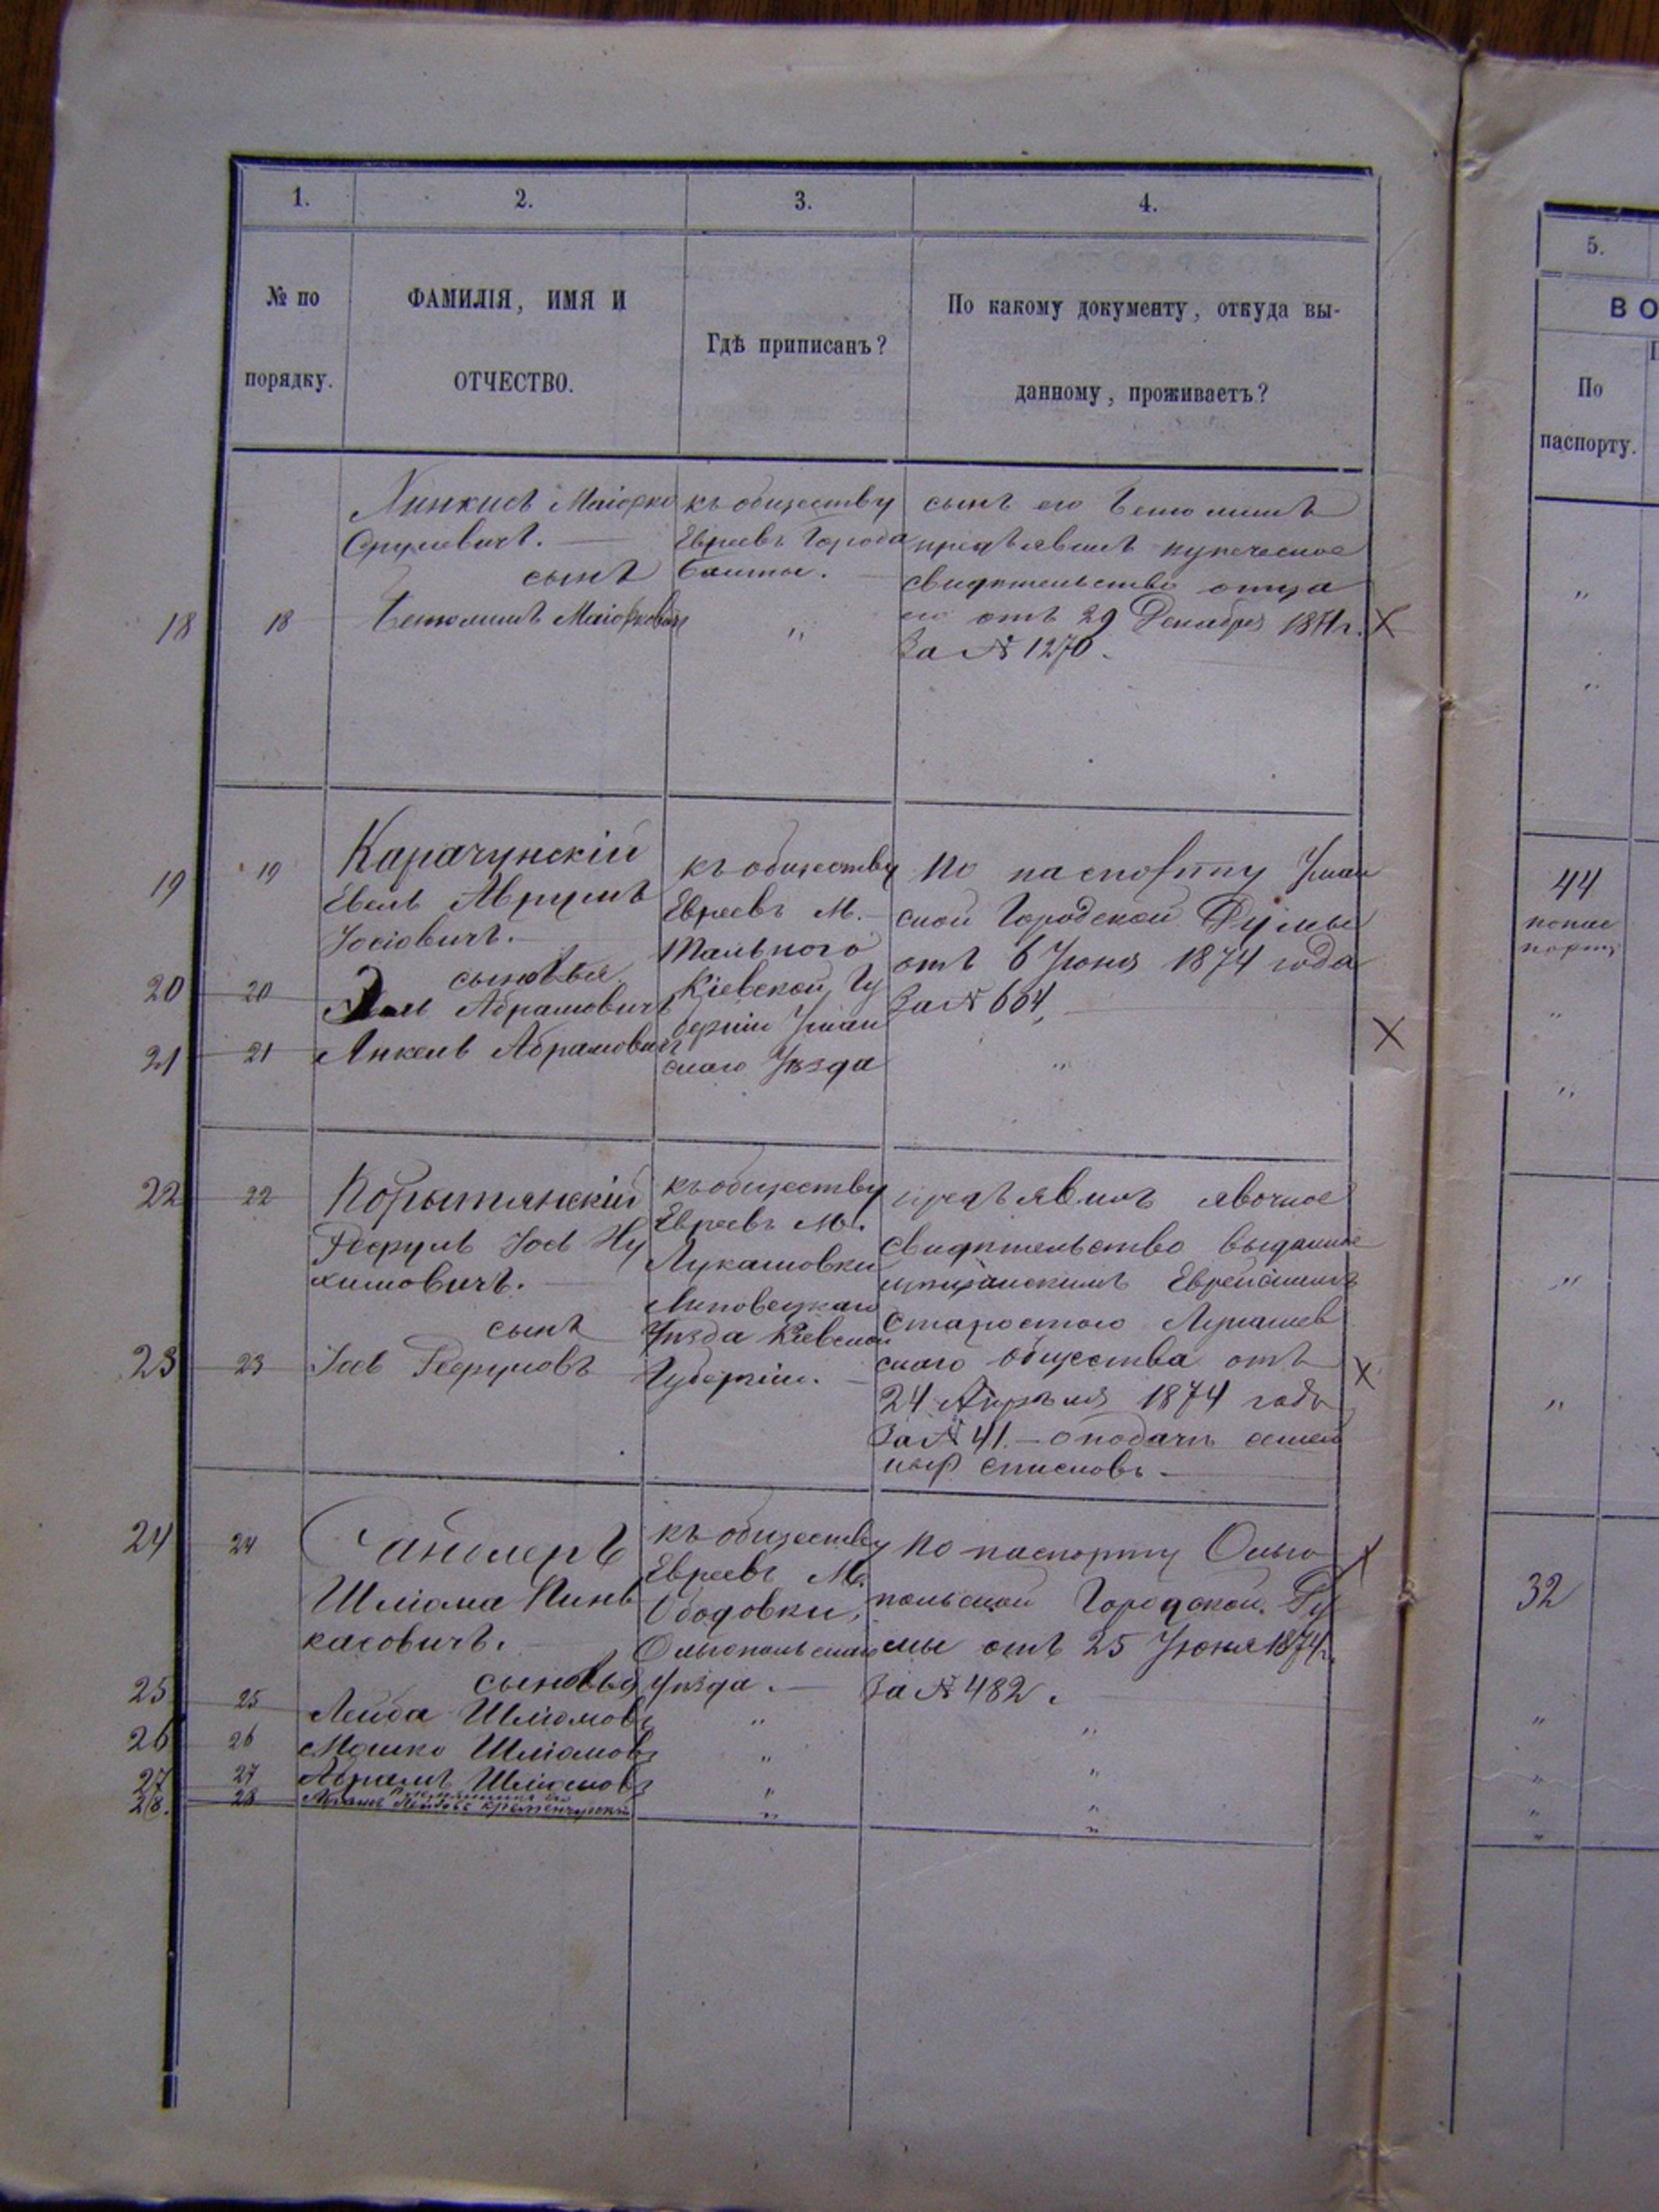 1. 2. 3. 4.
№ по
порядку.
ФАМИЛІЯ, ИМЯ И
ОТЧЕСТВО.
Гдѣ приписанъ?
По какому документу, откуда вы-
данному, проживаетъ?
Хинкисъ Маіорко
Срулевичъ.
сынъ
18 18 Беньюминъ Маіорковичъ
къ обществу
Евреевъ Города
Балты.
"
сынъ его Беньюминъ
предъявилъ купеческое
свидѣтельство отца
его отъ 29 Декабря 1871 г. X
За № 1270.
19 19 Карачунскій
Евель Аврумъ
Іосіовичъ.
сыновья
20 20 Абрамовичъ
21 21 Янкель Абрамович
къ обществу
Евреевъ М.
Тального
Кіевской Гу
берніи Уман
скаго Уѣзда
По паспорту Уман
ской Городской Думы
отъ 6 Іюня 1874 года
За № 604.
"
X
22 22 Корытянскій
Рефулъ Іосъ Ну
химовичъ.
сынъ
23 23 Іосъ Рефуловъ
къ обществу
Евреевъ М.
Лукашовки
Липовецкаго
Уѣзда Кіевской
Губерніи.
предъявилъ явочное
свидѣтельство выданное
Еврейскимъ
Старостою Лукашев
скаго общества отъ
24 Апрѣля 1874 года
За № 41. – о подачѣ семей
ныхъ списковъ.
X
24 24 Сандлеръ
Шліома Пинь
касовичъ.
сыновья
25 25 Лейба Шліомовъ
26 26 Мошко Шліомовъ
27 27 Абрамъ Шліомовъ
28. 28 Лейбовъ Кременчугскій
къ обществу
Евреевъ М.
Ободовки,
Ольгопольскаго
Уѣзда.
"
"
"
"
По паспорту Ольго
польской Городской Ду
мы отъ 25 Іюня 1874 г.
За № 482.
"
"
"
"
X
5.
ВО
По
паспорту.
"
"
44
попас
порту
"
"
"
"
32
"
"
"
"